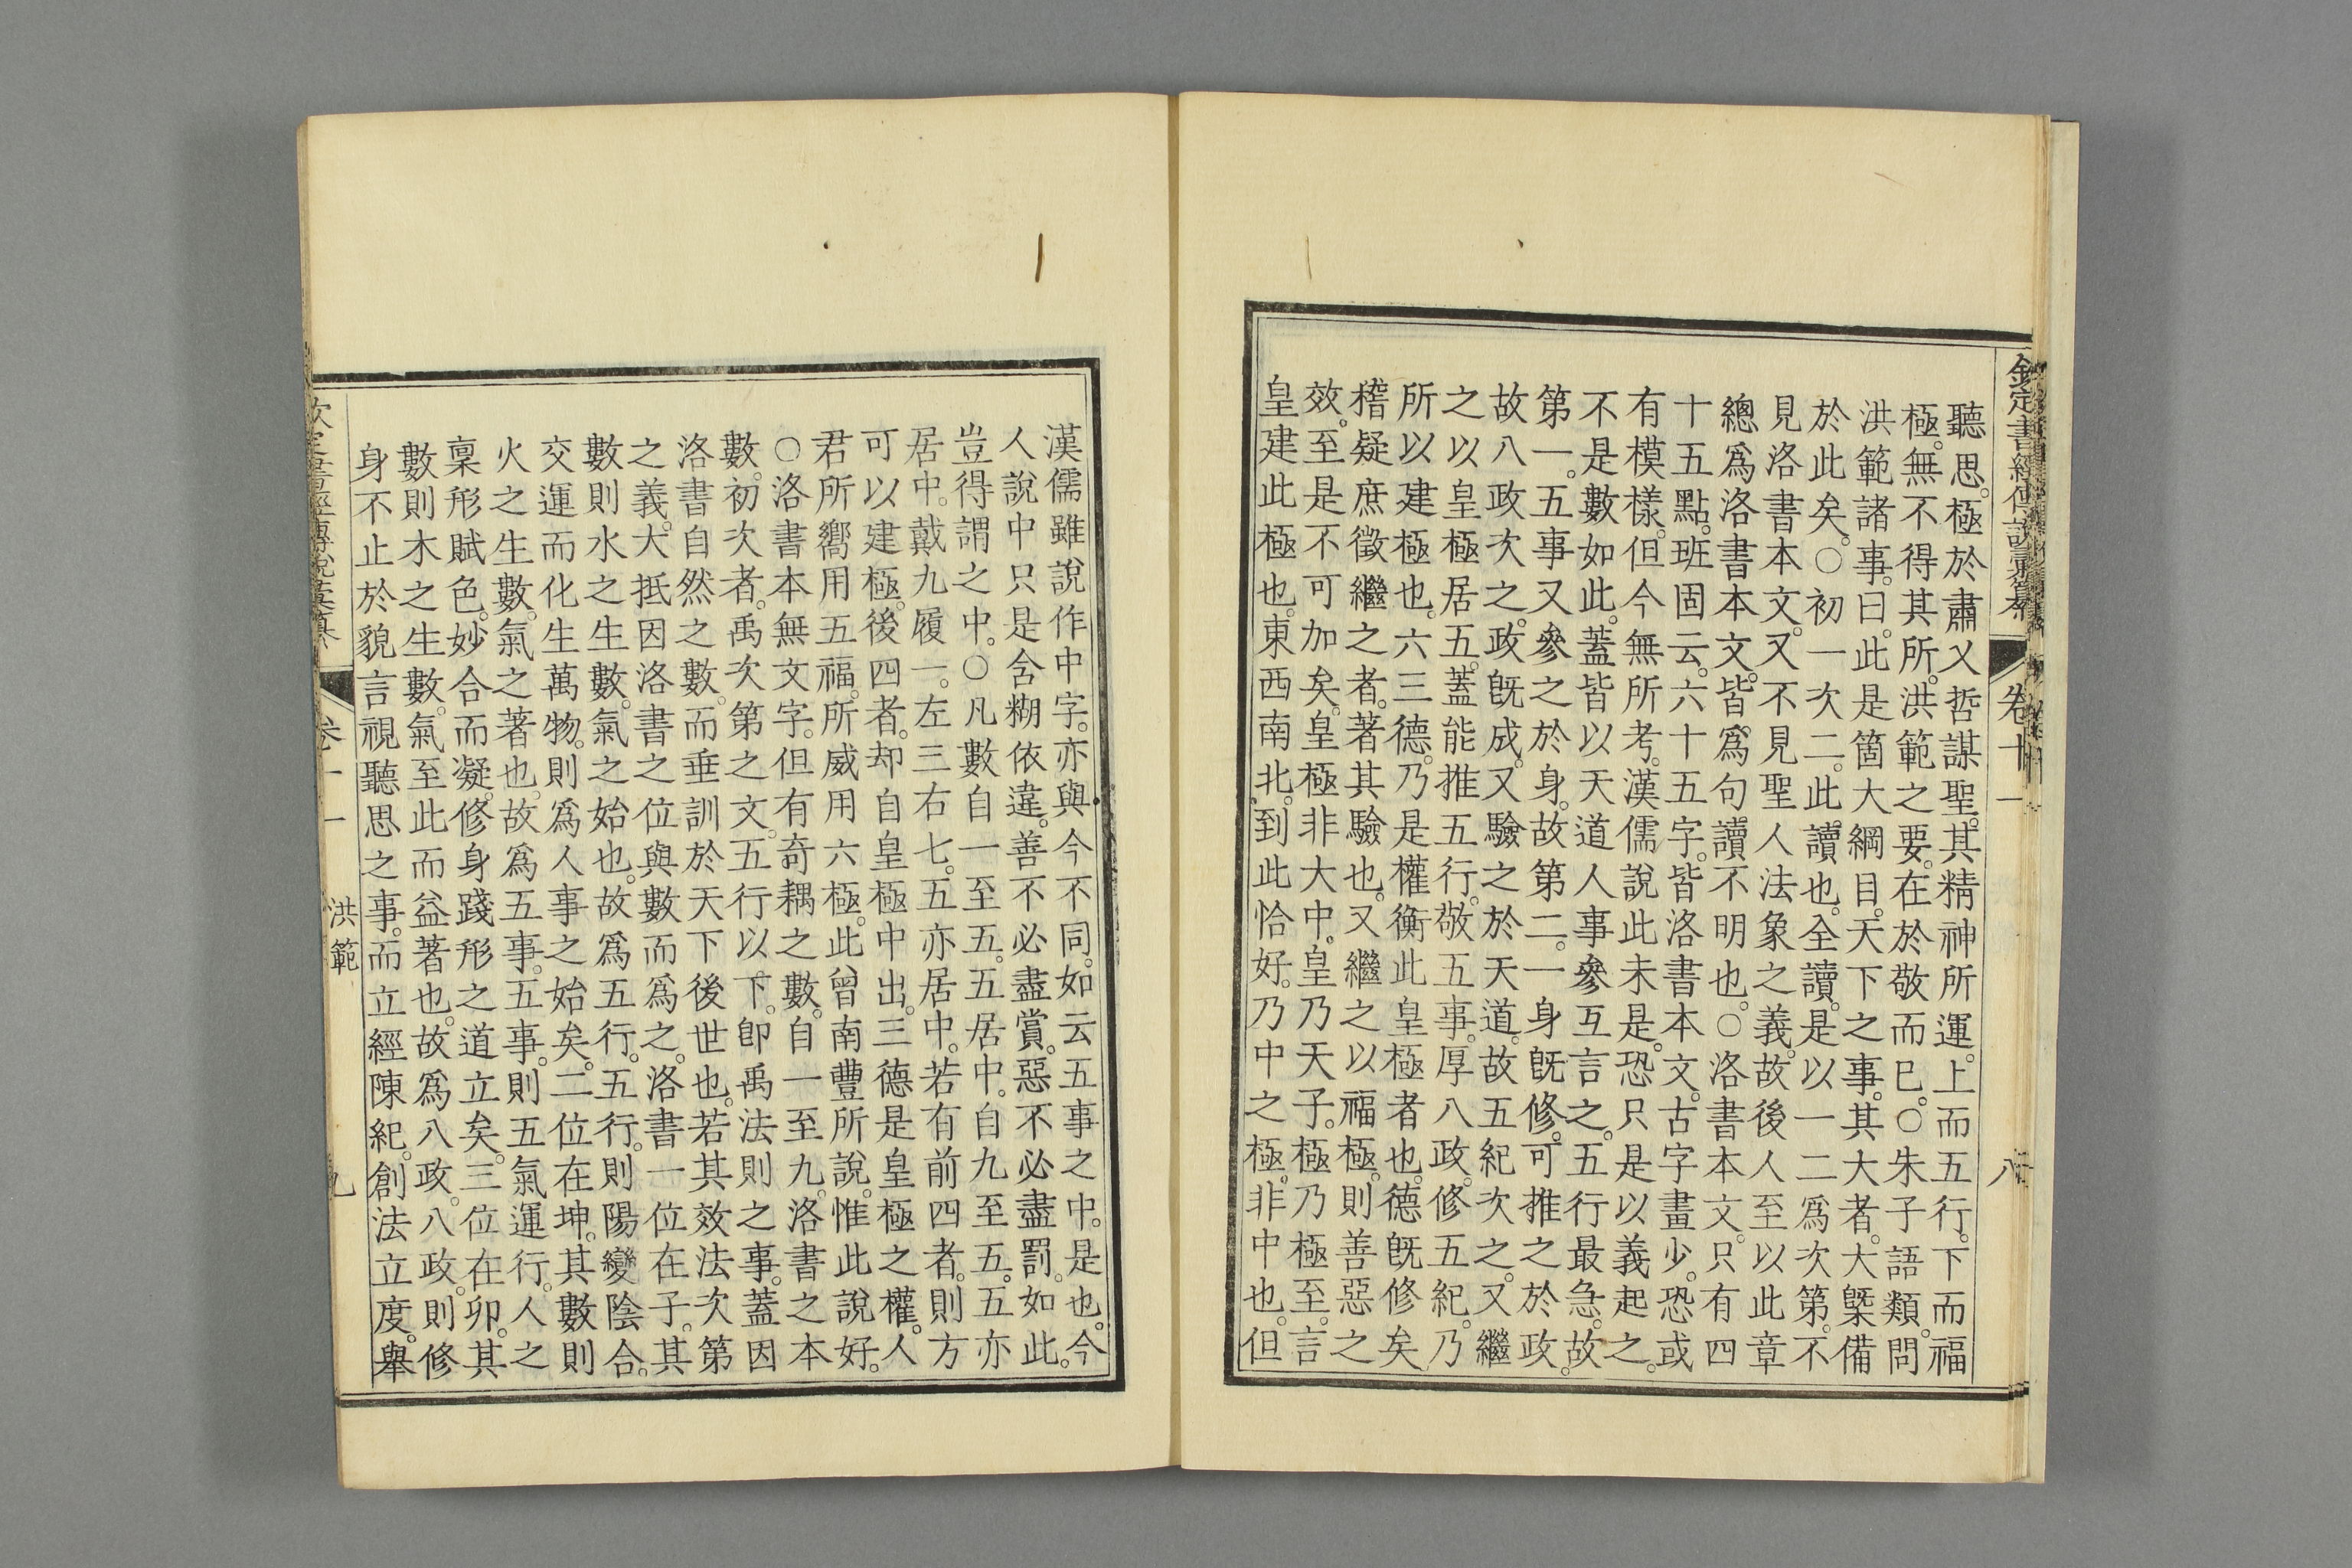 欽定書經傳說彙纂 卷十一 八
聽思。極於肅乂哲謀聖。其精神所運。上而五行。下而福
極。無不得其所。洪範之要。在於敬而已。○朱子語類。問
洪範諸事。曰。此是箇大綱目。天下之事。其大者。大槩備
於此矣。○初一次二。此讀也。全讀。是以一二爲次第。不
見洛書本文。又不見聖人法象之義。故後人至以此章
總爲洛書本文。皆爲句讀不明也。○洛書本文。只有四
十五點。班固云。六十五字。皆洛書本文。古字畫少。恐或
有模樣。但今無所考。漢儒說此未是。恐只是以義起之。
不是數如此。蓋皆以天道人事參互言之。五行最急。故
第一。五事又參之於身。故第二。一身旣修。可推之於政。
故八政次之。政旣成。又驗之於天道。故五紀次之。又繼
之以皇極居五。蓋能推五行。敬五事。厚八政。修五紀。乃
所以建極也。六三德。乃是權衡此皇極者也。德旣修矣
稽疑庶徵繼之者。著其驗也。又繼之以福極。則善惡之
效。至是不可加矣。皇極非大中。皇乃天子。極乃極至。言
皇建此極也。東西南北。到此恰好。乃中之極。非中也。但
漢儒雖說作中字。亦與今不同。如云五事之中。是也。今
人說中只是含糊依違。善不必盡賞。惡不必盡罰。如此。
豈得謂之中。○凡數自一至五。五居中。自九至五。五亦
居中。戴九履一。左三右七。五亦居中。若有前四者。則方
可以建極。後四者。却自皇極中出。三德是皇極之權。人
君所嚮用五福。所威用六極。此曾南豐所說。惟此說好。
○洛書本無文字。但有奇耦之數。自一至九。洛書之本
數。初次者。禹次第之文。五行以下。卽禹法則之事。蓋因
洛書自然之數。而垂訓於天下後世也。若其效法次第
之義。大抵因洛書之位與數而爲之。洛書一位在子。其
數則水之生數。氣之始也。故爲五行。五行。則陽變陰合。
交運而化生萬物。則爲人事之始矣。二位在坤。其數則
火之生數。氣之著也。故爲五事。五事。則五氣運行。人之
稟形賦色。妙合而凝。修身踐形之道立矣。三位在卯。其
數則木之生數。氣至此而益著也。故爲八政。八政。則修
身不止於貌言視聽思之事。而立經陳紀。創法立度。舉
欽定書經傳說彙纂 卷十一 洪範 九